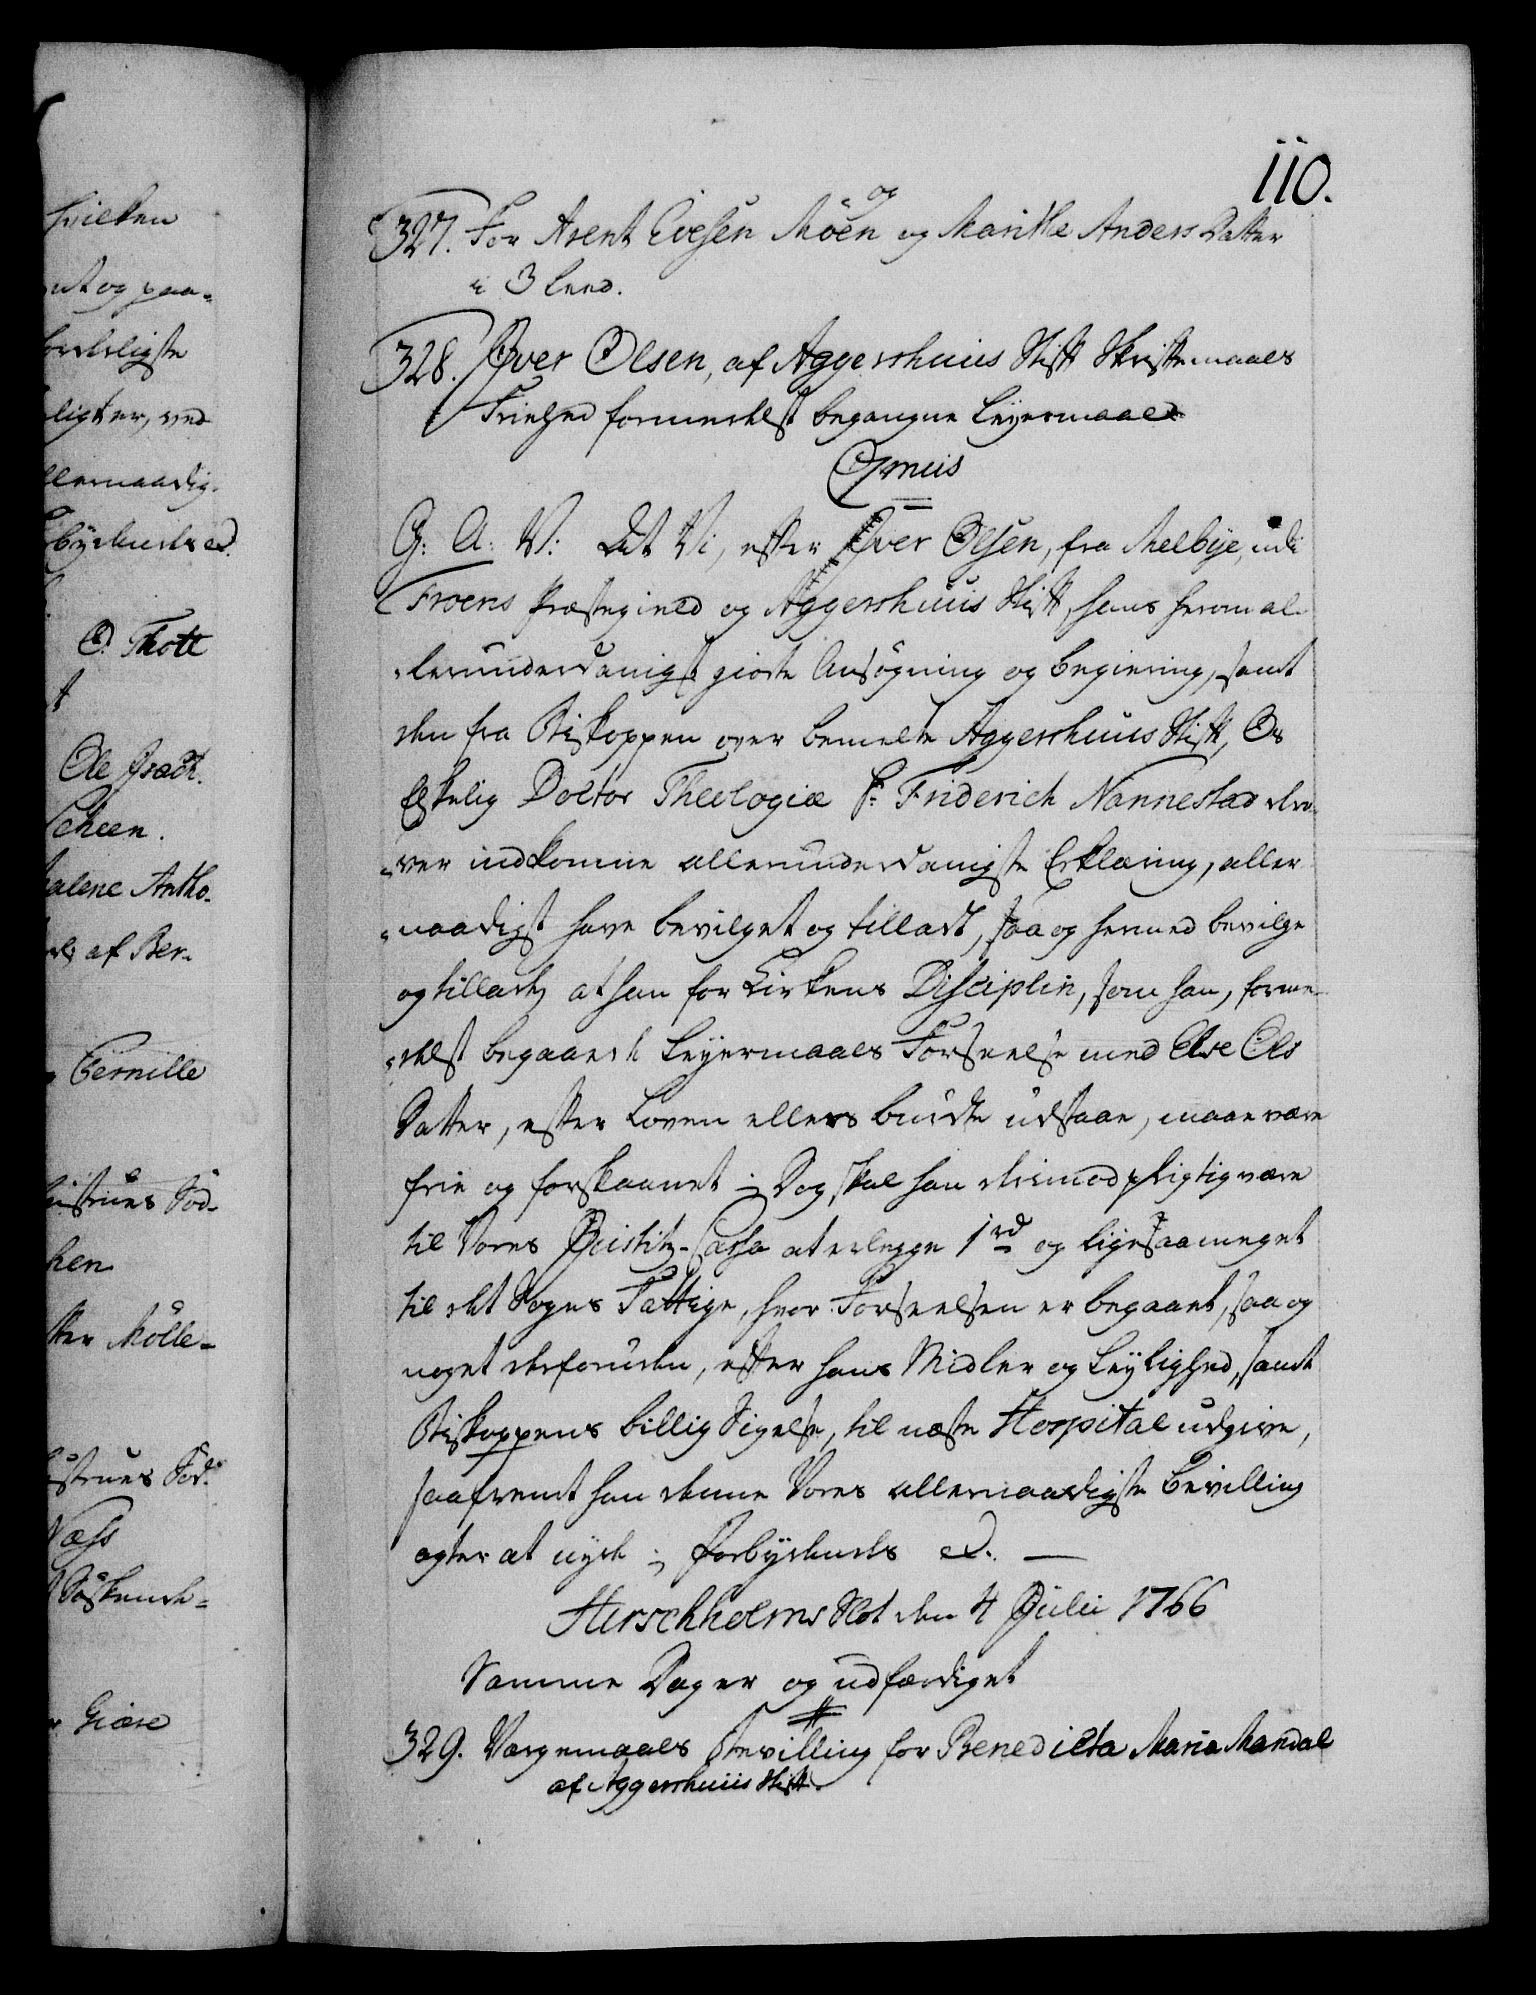 110.
og
327. For Arent Evesen Möen og Marithe Anders Datter
i 3 Leed.
328. Iver Olsen, af Aggershuus Stift Skriftemaals
Friehed formedelst begangne Leyermaal
Ojmuis
G: A: V: At Vi, efter Iver Olsen, fra Melbye, udi
Froens Præstegield og Aggershuus Stift, hans herom al-
lerunderdanigst giorte Ansøgning og Begiering, samt
den fra Biskoppen over bemelte Aggershuus Stift, Os
Elskelig Doctor Theologiæ Hr. Friderich Nannestad der-
over indkomne allerunderdanigste Erklæring, aller
naadigst have bevilget og tilladt, saa og hermed bevilge
og tillade, at han for Kirkens Disciplin, som han, forme-
delst begaaede Leyermaals Forseelse med Else Ols
Datter, efter Loven ellers burde udstaae, maae være
frie og forskaanet; Dog skal han derimod pligtig være
til Vores Justitz-Cassa at erlegge 1 rd og ligesaameget
til det Sogns Fattige, hvor Forseelsen er begaaet, saa og
noget desforuden, efter hans Midler og Leylighed, samt
Biskoppens billig Sigelse, til næste Hospital udgive,
saafremt han denne Vores allernaadigste Bevilling
agter at nyde; Forbydendes et. —
Hirschholms Slot den 4 Julii 1766
Samme Dag er og udfærdiget
329. Værgemaals Bevilling for Benedicta Maria Mandal
af Aggershuus Stift.